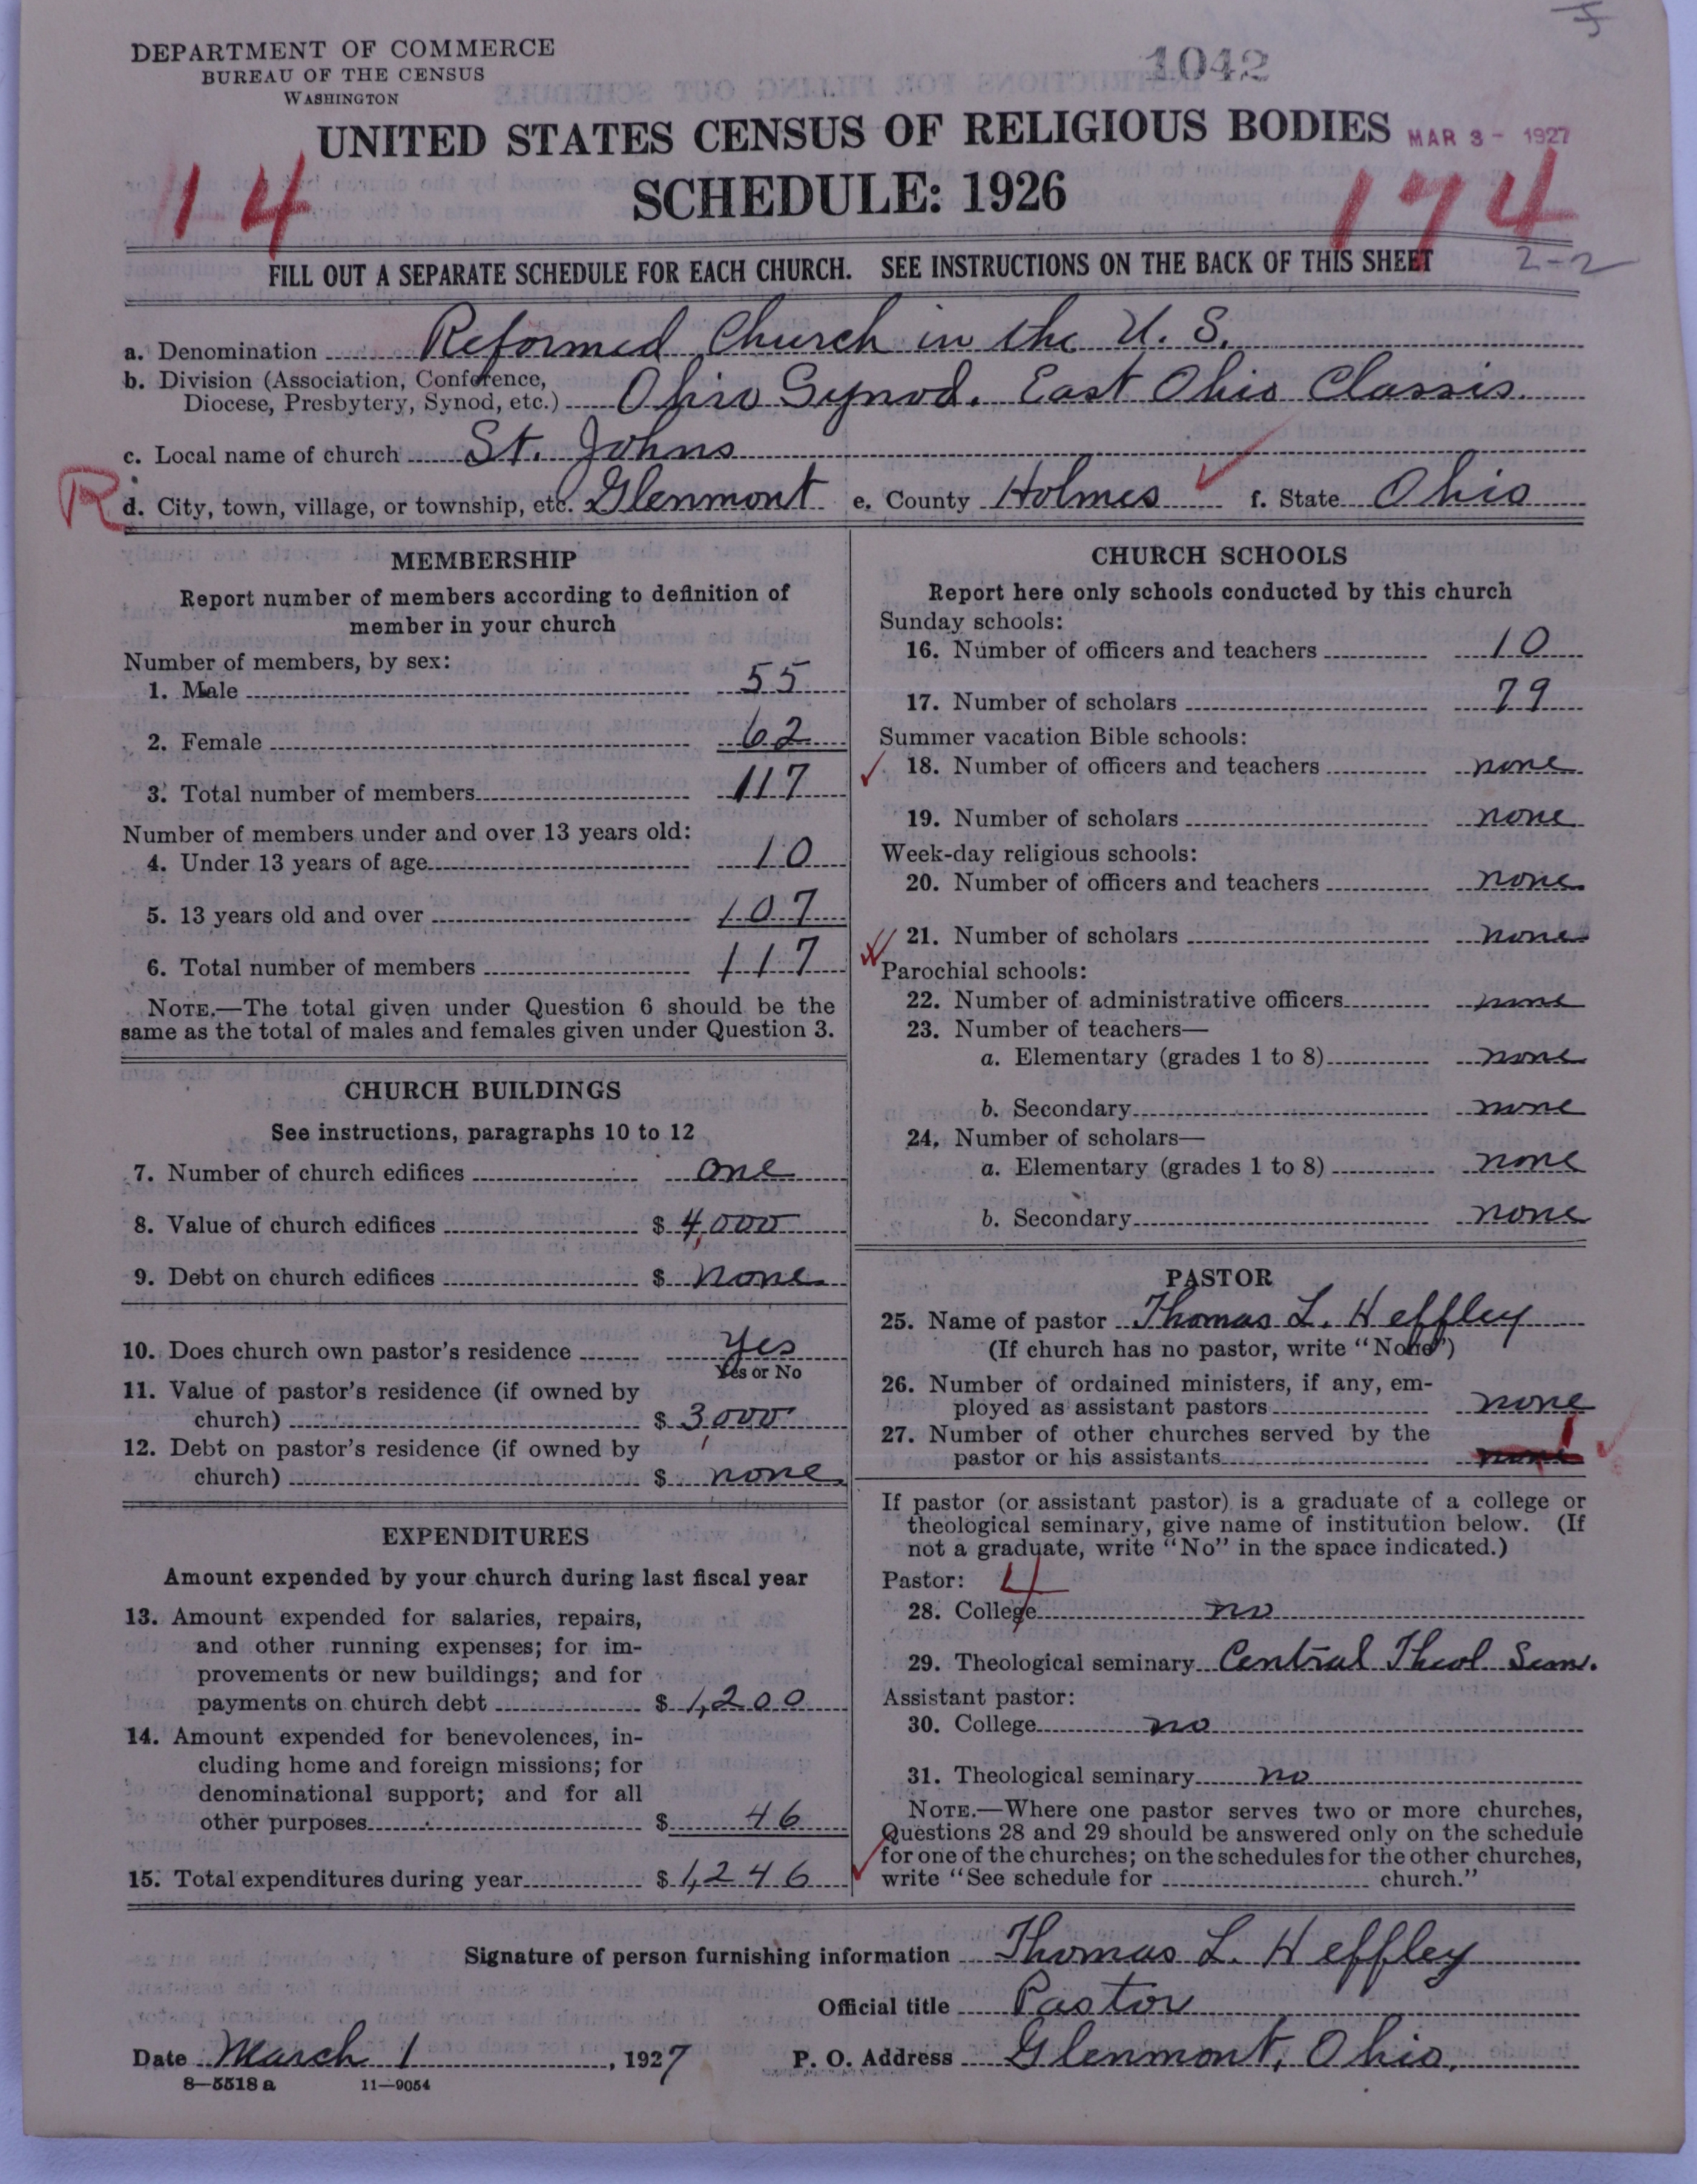 DEPARTMENT OF COMMERCE
BUREAU OF THE CENSUS
WASHINGTON
1042
UNITED STATES CENSUS OF RELIGIOUS BODIES
MAR 3 - 1927
SCHEDULE: 1926
14
174
FILL OUT A SEPARATE SCHEDULE FOR EACH CHURCH. SEE INSTRUCTIONS ON THE BACK OF THIS SHEET
2-2
a. Denomination Reformed Church in the U. S.
b. Division (Association, Conference,
Diocese, Presbytery, Synod, etc.) Ohio Synod. East Ohio Classis.
c. Local name of church St. Johns
R d. City, town, village, or township, etc. Glenmont e. County Holmes f. State Ohio
MEMBERSHIP
Report number of members according to definition of
member in your church
Number of members, by sex:
1. Male 55
2. Female 62
3. Total number of members 117
Number of members under and over 13 years old:
4. Under 13 years of age 10
5. 13 years old and over 107
6. Total number of members 117
NOTE.—The total given under Question 6 should be the
same as the total of males and females given under Question 3.
CHURCH BUILDINGS
See instructions, paragraphs 10 to 12
7. Number of church edifices one
8. Value of church edifices $ 4,000
9. Debt on church edifices $ none
10. Does church own pastor's residence yes
Yes or No
11. Value of pastor's residence (if owned by
church) $ 3,000
12. Debt on pastor's residence (if owned by
church) $ none
EXPENDITURES
Amount expended by your church during last fiscal year
13. Amount expended for salaries, repairs,
and other running expenses; for im-
provements or new buildings; and for
payments on church debt $ 1,200
14. Amount expended for benevolences, in-
cluding home and foreign missions; for
denominational support; and for all
other purposes $ 46
15. Total expenditures during year $ 1,246
CHURCH SCHOOLS
Report here only schools conducted by this church
Sunday schools:
16. Number of officers and teachers 10
17. Number of scholars 79
Summer vacation Bible schools:
18. Number of officers and teachers none
19. Number of scholars none
Week-day religious schools:
20. Number of officers and teachers none
21. Number of scholars none
Parochial schools:
22. Number of administrative officers none
23. Number of teachers—
a. Elementary (grades 1 to 8) none
b. Secondary none
24. Number of scholars—
a. Elementary (grades 1 to 8) none
b. Secondary none
PASTOR
25. Name of pastor Thomas L. Heffley
(If church has no pastor, write "None")
26. Number of ordained ministers, if any, em-
ployed as assistant pastors none
27. Number of other churches served by the
pastor or his assistants none 1
If pastor (or assistant pastor) is a graduate of a college or
theological seminary, give name of institution below. (If
not a graduate, write "No" in the space indicated.)
Pastor: 4
28. College no
29. Theological seminary Central Theol Sem.
Assistant pastor:
30. College no
31. Theological seminary no
NOTE.—Where one pastor serves two or more churches,
Questions 28 and 29 should be answered only on the schedule
for one of the churches; on the schedules for the other churches,
write "See schedule for church."
Signature of person furnishing information Thomas L. Heffley
Official title Pastor
Date March 1, 1927 P. O. Address Glenmont, Ohio.
8—5518 a 11—9054